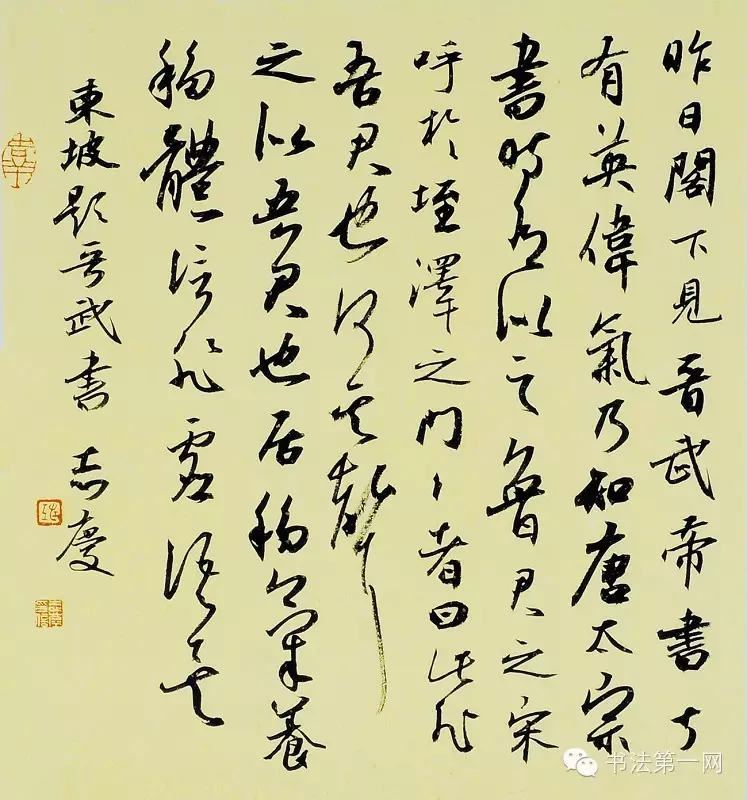 昨日閣下見晋武帝書甚
有英偉氣乃知唐太宗
書時有似之魯君之宋
呼於垤澤之門〻者曰此非
吾君也何其聲
之似吾君也居移氣養
移體信非虛語矣
東坡題晋武書 志慶
书法第一网